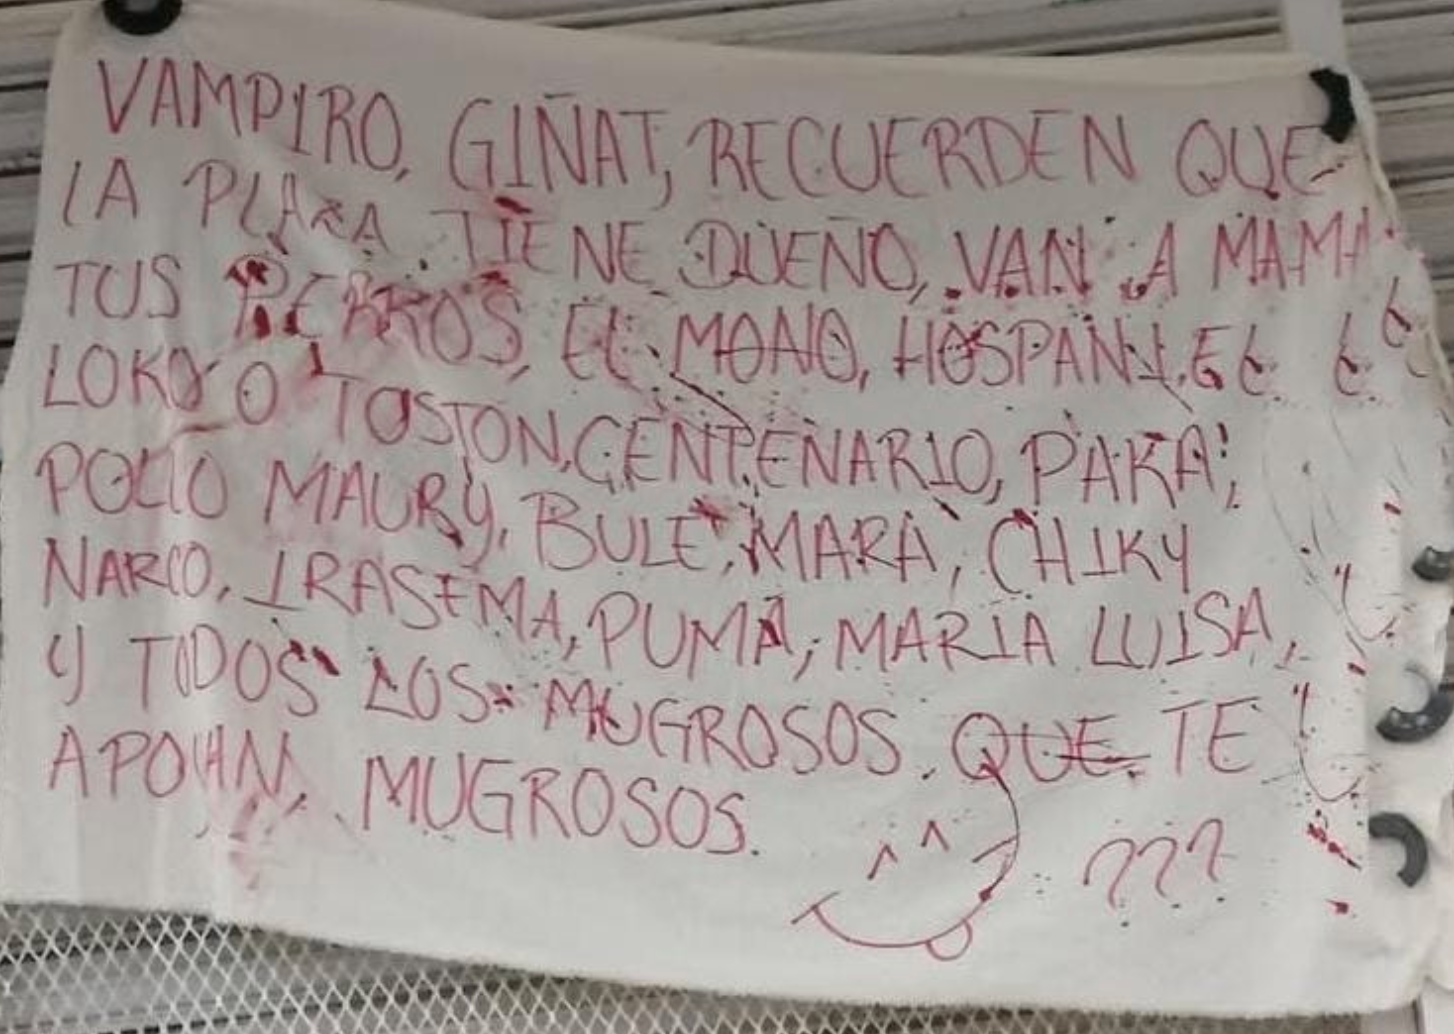 VAMPIRO, GIÑAT, RECUERDEN QUE
LA PLAZA TIENE DUEÑO, VAN A MAMAR
TUS PERROS, EL MONO, HOSPANY, EL
LOKO O TOSTON, CENTENARIO, PAKA,
POLLO MAURY, BULE, MARA, CHIKY
NARCO, IRASEMA, PUMA, MARIA LUISA,
Y TODOS LOS MUGROSOS QUE TE
APOYAN, MUGROSOS.
???